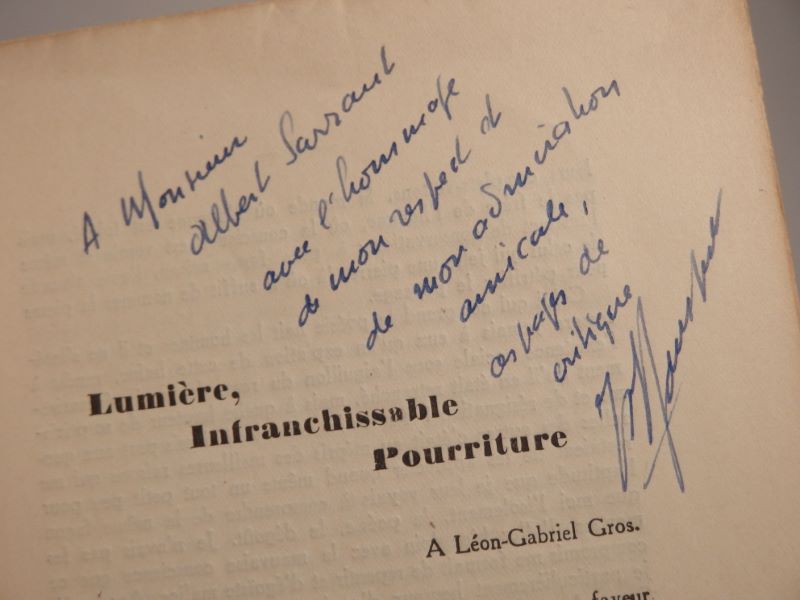 A Monsieur
Albert Sarraut
avec l'hommage
de mon respect et
de mon admiration
amicale,
ces pages de
critique
Lumière,
Infranchissable
Pourriture
A Léon-Gabriel Gros.
faveur